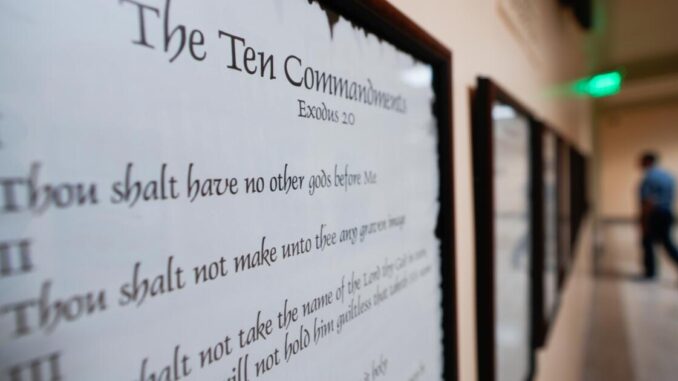 The Ten Commandments
Exodus 20
Thou shalt have no other gods before Me
II
Thou shalt not make unto thee any graven image
III
shalt not take the name of the Lord thy God in
will not hold him guiltless that